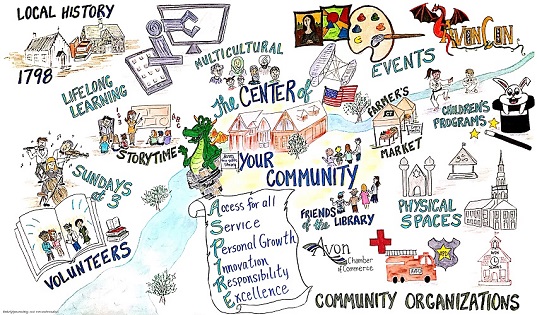 LOCAL HISTORY
1798
MULTICULTURAL
EVENTS
AVONCON
LIFELONG
LEARNING
the CENTER of
YOUR COMMUNITY
STORYTIME
FARMER'S
MARKET
CHILDREN'S
PROGRAMS
SUNDAYS
at 3
VOLUNTEERS
Access for all
Service
Personal Growth
Innovation
Responsibility
Excellence
FRIENDS of the LIBRARY
PHYSICAL
SPACES
Avon
Chamber
of Commerce
COMMUNITY ORGANIZATIONS